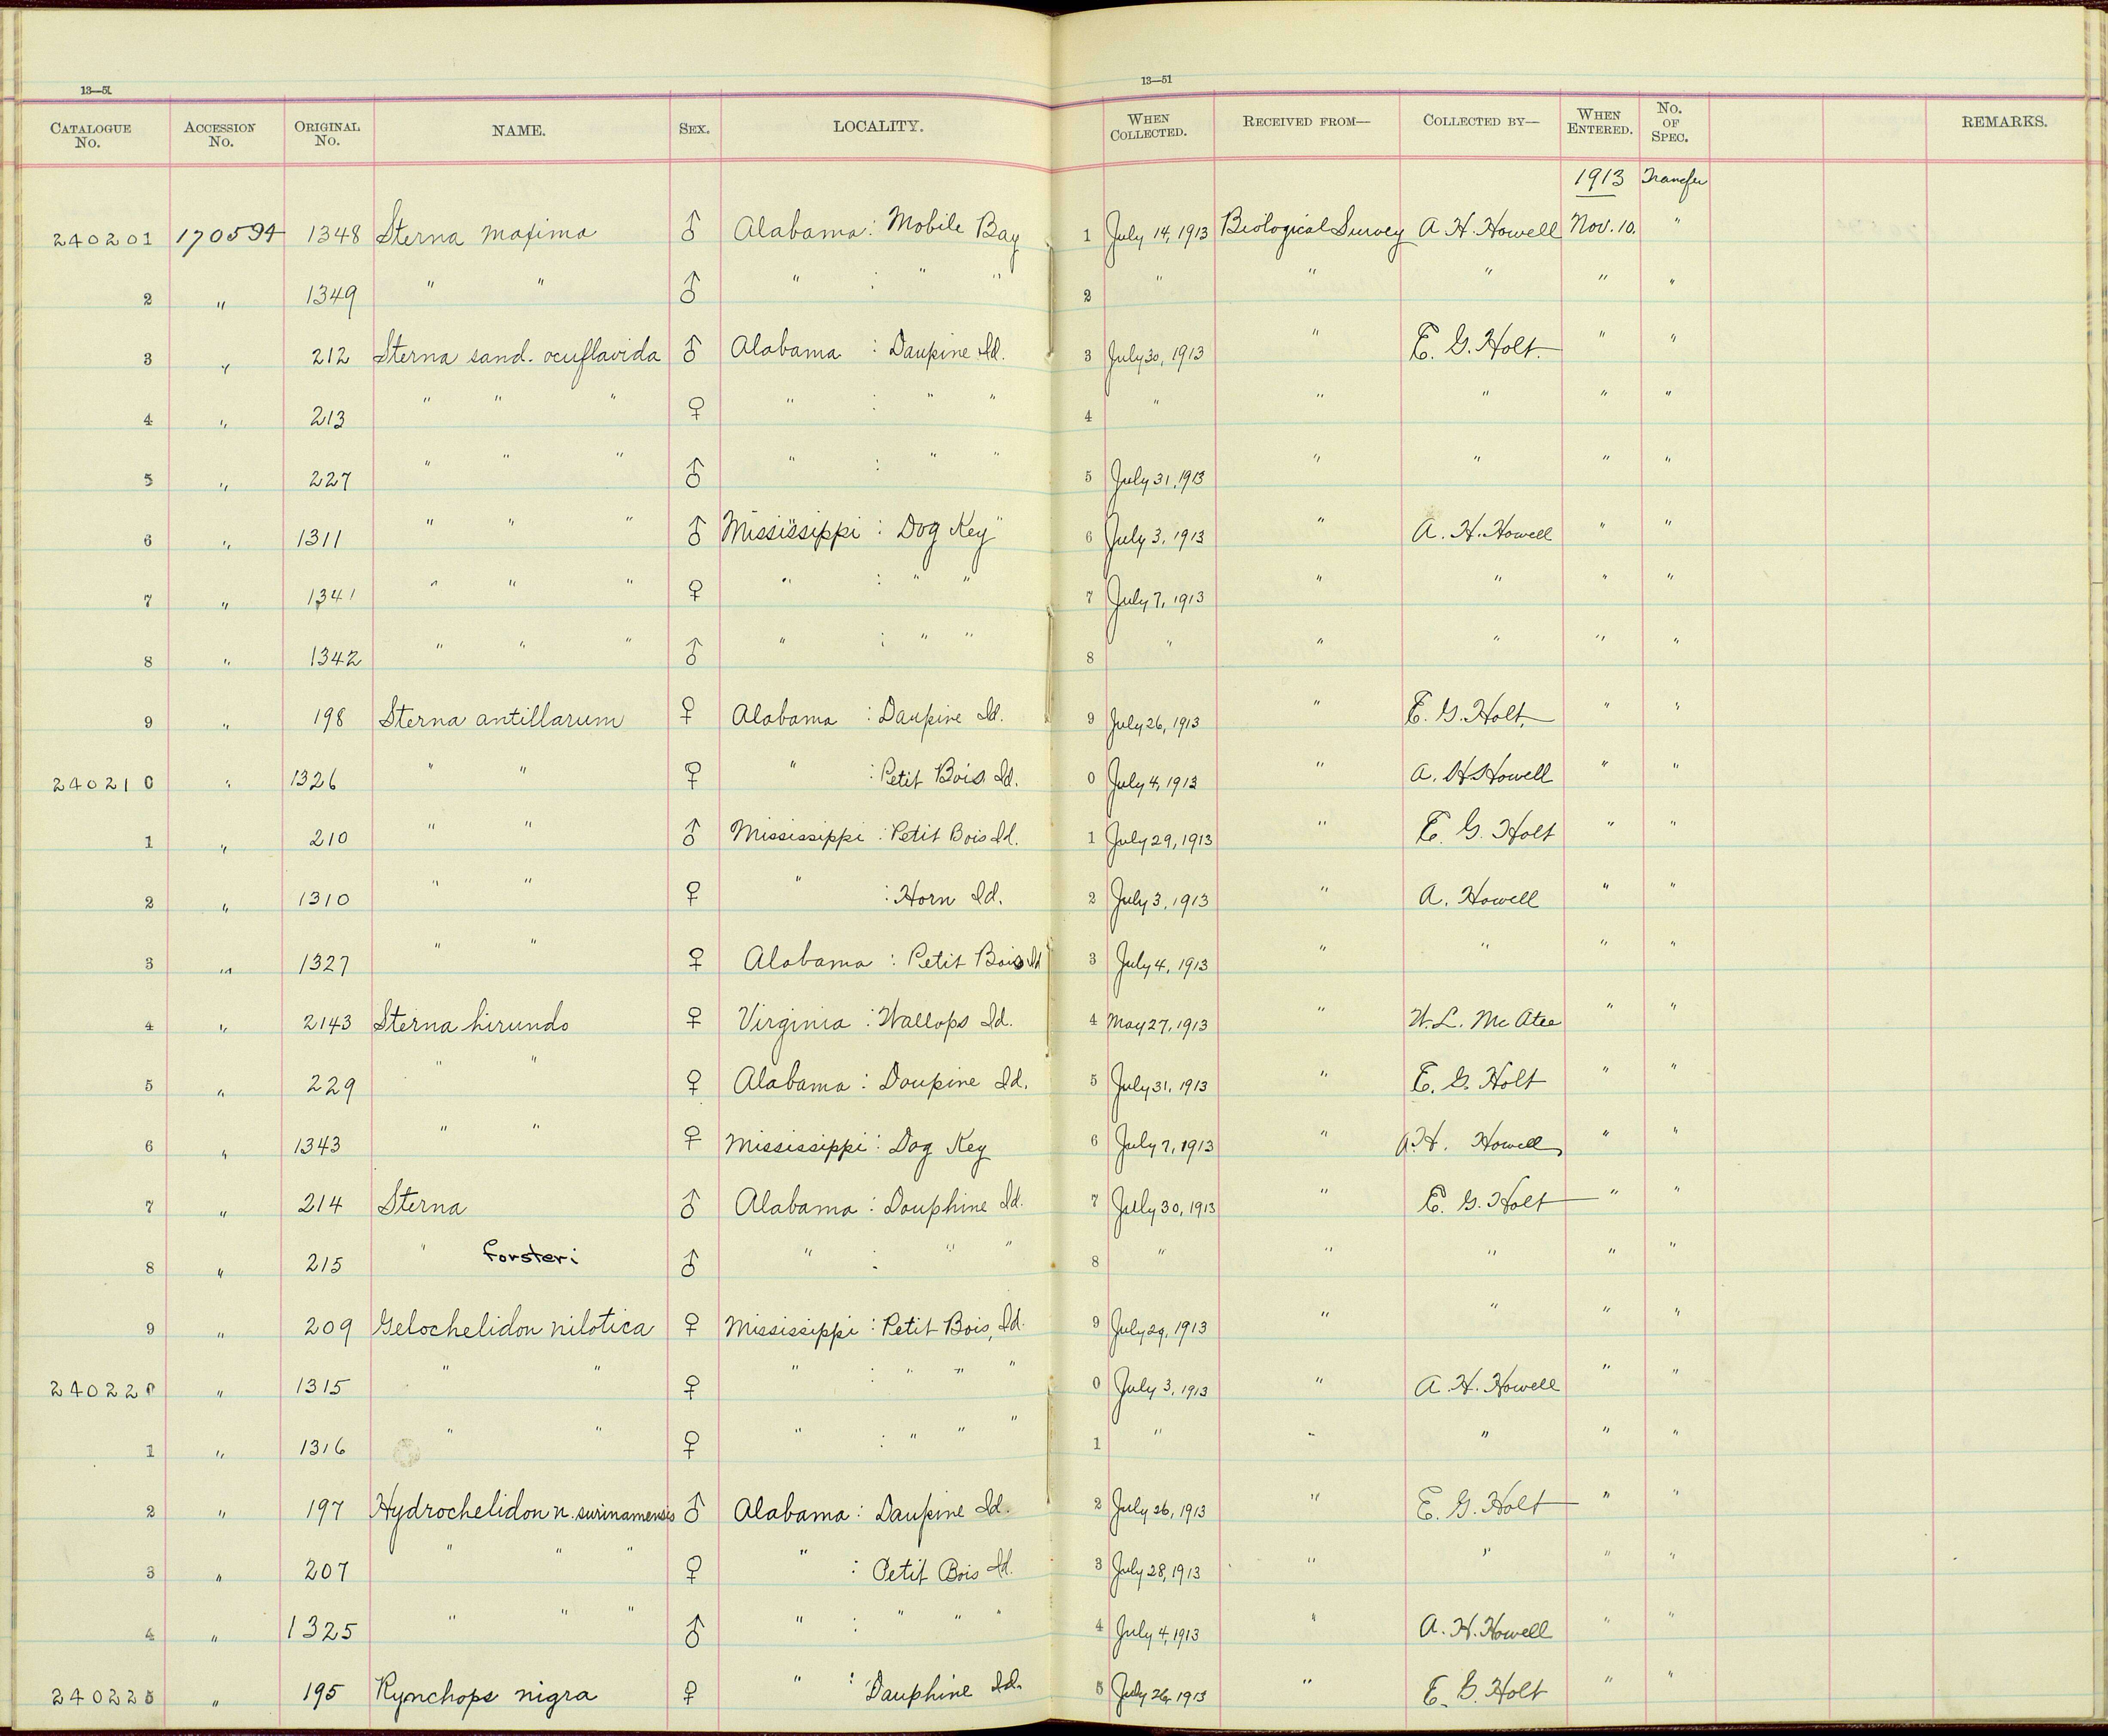 13—51 13—51
CATALOGUE No. ACCESSION No. ORIGINAL No. NAME. SEX. LOCALITY. WHEN COLLECTED. RECEIVED FROM— COLLECTED BY— WHEN ENTERED. No. OF SPEC. REMARKS.
1913 Transfer
240201 170594 1348 Sterna maxima ♂ Alabama: Mobile Bay 1 July 14, 1913 Biological Survey A. H. Howell Nov. 10. "
2 " 1349 " " ♂ " : " " 2 " " " " "
3 " 212 Sterna sand. acuflavida ♂ Alabama : Daupine Id. 3 July 30, 1913 " E. G. Holt. " "
4 " 213 " " " ♀ " : " " 4 " " " " "
5 " 227 " " " ♂ " : " " 5 July 31, 1913 " " " "
6 " 1311 " " " ♂ Mississippi : Dog Key 6 July 3, 1913 " A. H. Howell " "
7 " 1341 " " " ♀ " : " " 7 July 7, 1913 " " " "
8 " 1342 " " " ♂ " : " " 8 " " " " "
9 " 198 Sterna antillarum ♀ Alabama : Daupine Id. 9 July 26, 1913 " E. G. Holt. " "
240210 " 1326 " " ♀ " : Petit Bois Id. 0 July 4, 1913 " A. H. Howell " "
1 " 210 " " ♂ Mississippi : Petit Bois Id. 1 July 29, 1913 " E. G. Holt " "
2 " 1310 " " ♀ " : Horn Id. 2 July 3, 1913 " A. Howell " "
3 " 1327 " " ♀ Alabama : Petit Bois Id 3 July 4, 1913 " " " "
4 " 2143 Sterna hirundo ♀ Virginia : Wallops Id. 4 May 27, 1913 " W. L. McAtee " "
5 " 229 " " ♀ Alabama : Daupine Id. 5 July 31, 1913 " E. G. Holt " "
6 " 1343 " " ♀ Mississippi : Dog Key 6 July 7, 1913 " A. H. Howell " "
7 " 214 Sterna ♂ Alabama : Dauphine Id. 7 July 30, 1913 " E. G. Holt " "
8 " 215 " forsteri ♂ " : " " 8 " " " " "
9 " 209 Gelochelidon nilotica ♀ Mississippi : Petit Bois, Id. 9 July 29, 1913 " " " "
240220 " 1315 " " ♀ " : " " " 0 July 3, 1913 " A. H. Howell " "
1 " 1316 " " ♀ " : " " " 1 " " " " "
2 " 197 Hydrochelidon n. surinamensis ♂ Alabama : Daupine Id. 2 July 26, 1913 " E. G. Holt " "
3 " 207 " " " ♀ " : Petit Bois Id. 3 July 28, 1913 " " " "
4 " 1325 " " " ♂ " : " " " 4 July 4, 1913 " A. H. Howell " "
240225 " 195 Rynchops nigra ♀ " : Dauphine Id. 5 July 26, 1913 " E. G. Holt " "